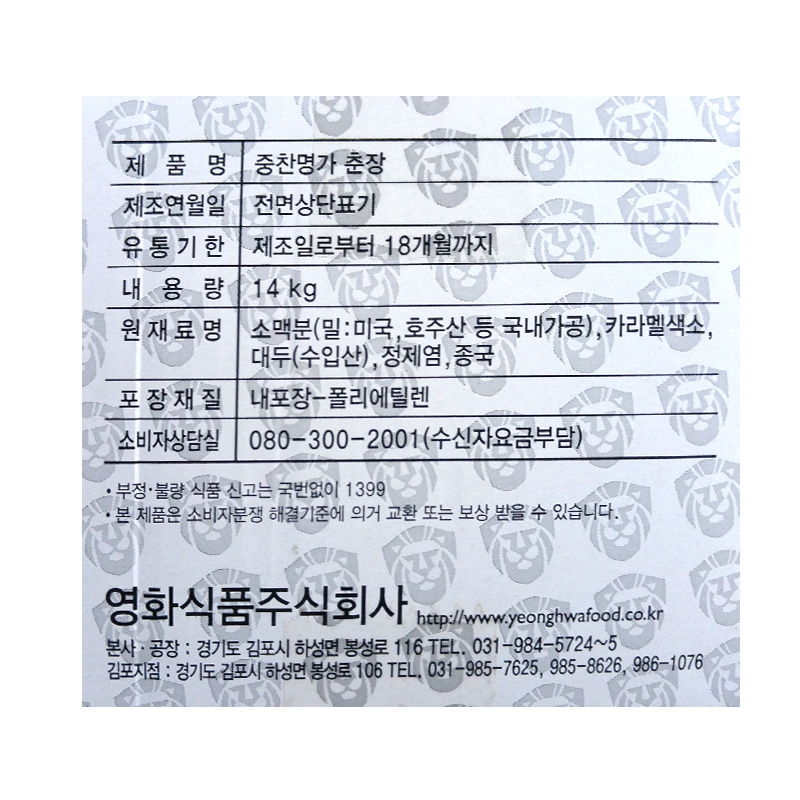 제 품 명 중찬명가 춘장
제조연월일 전면상단표기
유통기한 제조일로부터 18개월까지
내 용 량 14 kg
원재료명 소맥분(밀:미국,호주산 등 국내가공),카라멜색소,
대두(수입산),정제염,종국
포장재질 내포장-폴리에틸렌
소비자상담실 080-300-2001(수신자요금부담)
• 부정·불량 식품 신고는 국번없이 1399
• 본 제품은 소비자분쟁 해결기준에 의거 교환 또는 보상 받을 수 있습니다.
영화식품주식회사 http://www.yeonghwafood.co.kr
본사·공장 : 경기도 김포시 하성면 봉성로 116 TEL. 031-984-5724~5
김포지점 : 경기도 김포시 하성면 봉성로 106 TEL. 031-985-7625, 985-8626, 986-1076